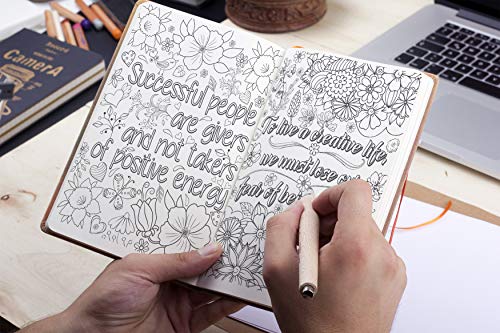 Successful people
are givers
and not takers
of positive energy
To live a creative life,
we must lose
fear of be
CamerA